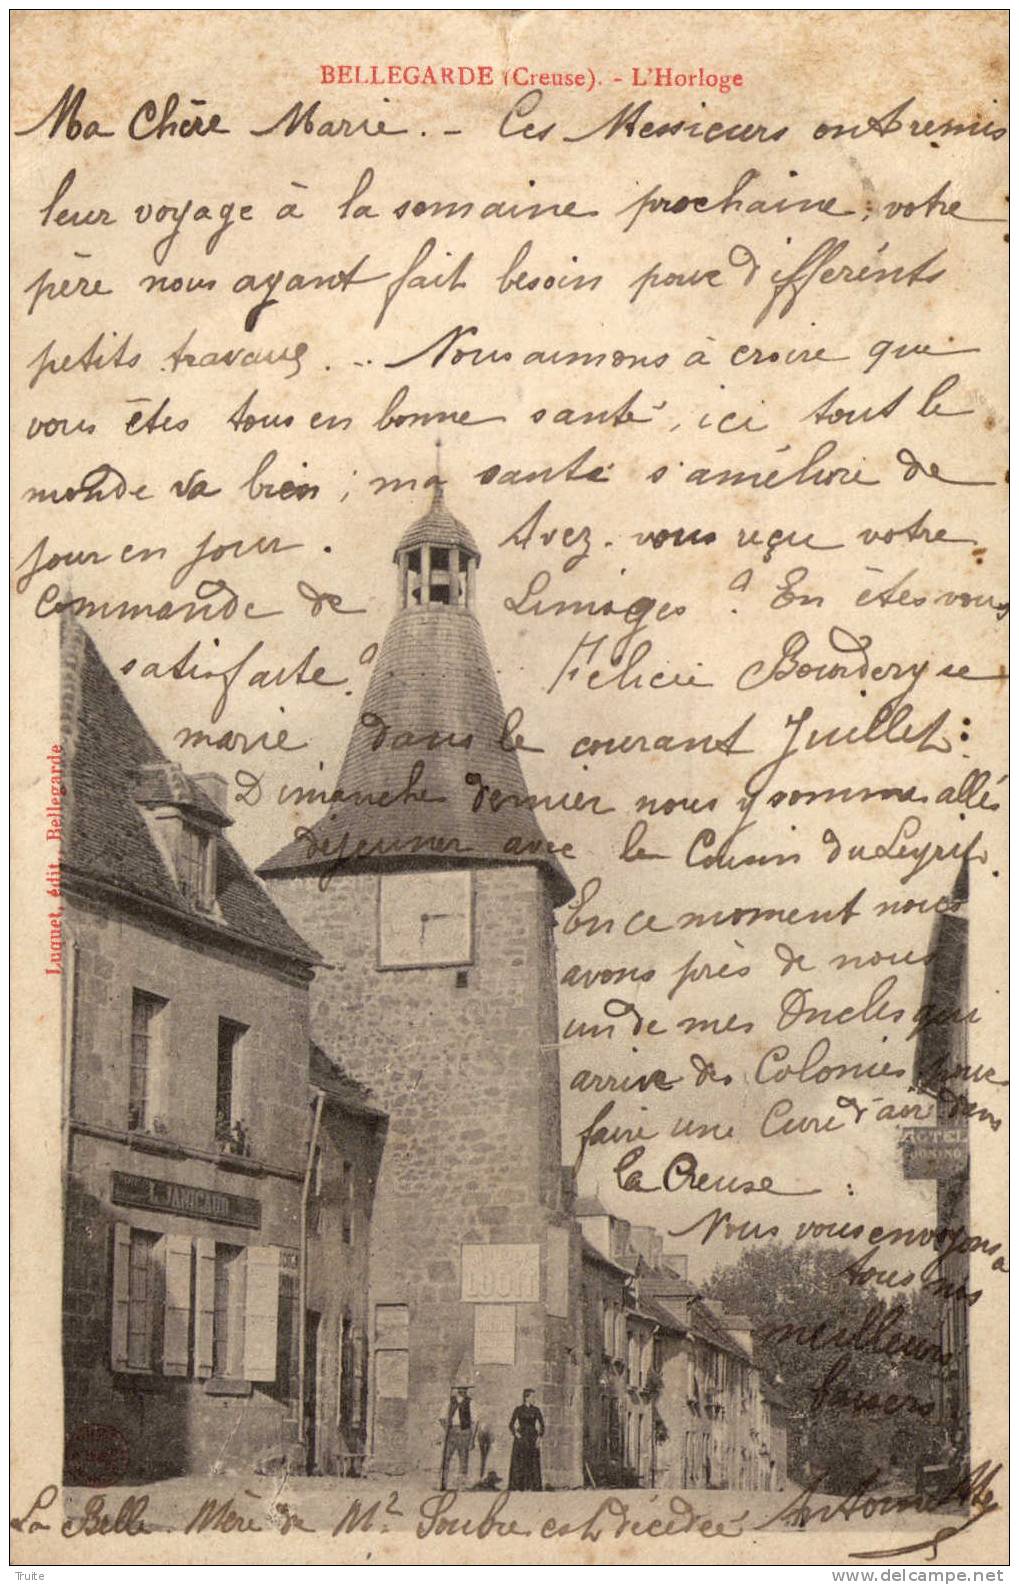 BELLEGARDE (Creuse). - L'Horloge
Ma Chère Marie. - Ces Messieurs ont remis
leur voyage à la semaine prochaine, votre
père nous ayant fait besoin pour différents
petits travaux. .. Nous aimons à croire que
vous êtes tous en bonne santé, ici tout le
monde va bien ; ma santé s'améliore de
jour en jour. Avez-vous reçu votre
commande de Limoges ? En êtes vous
satisfaite ? Félicie Bourdery se
marie dans le courant Juillet :
Dimanche dernier nous y sommes allés
déjeuner avec le Cousin du Leyrit.
En ce moment nous
avons près de nous
un de mes Oncles qui
arrive des Colonies pour
faire une Cure d'air dans
la Creuse :
Nous vous envoyons à
tous nos
meilleurs
baisers
Antoine
La Belle-Mère de Mr Soubre est décédée
Luquet, édit., Bellegarde
JANICAUD
HOTEL
LOUIT
Truite
www.delcampe.net